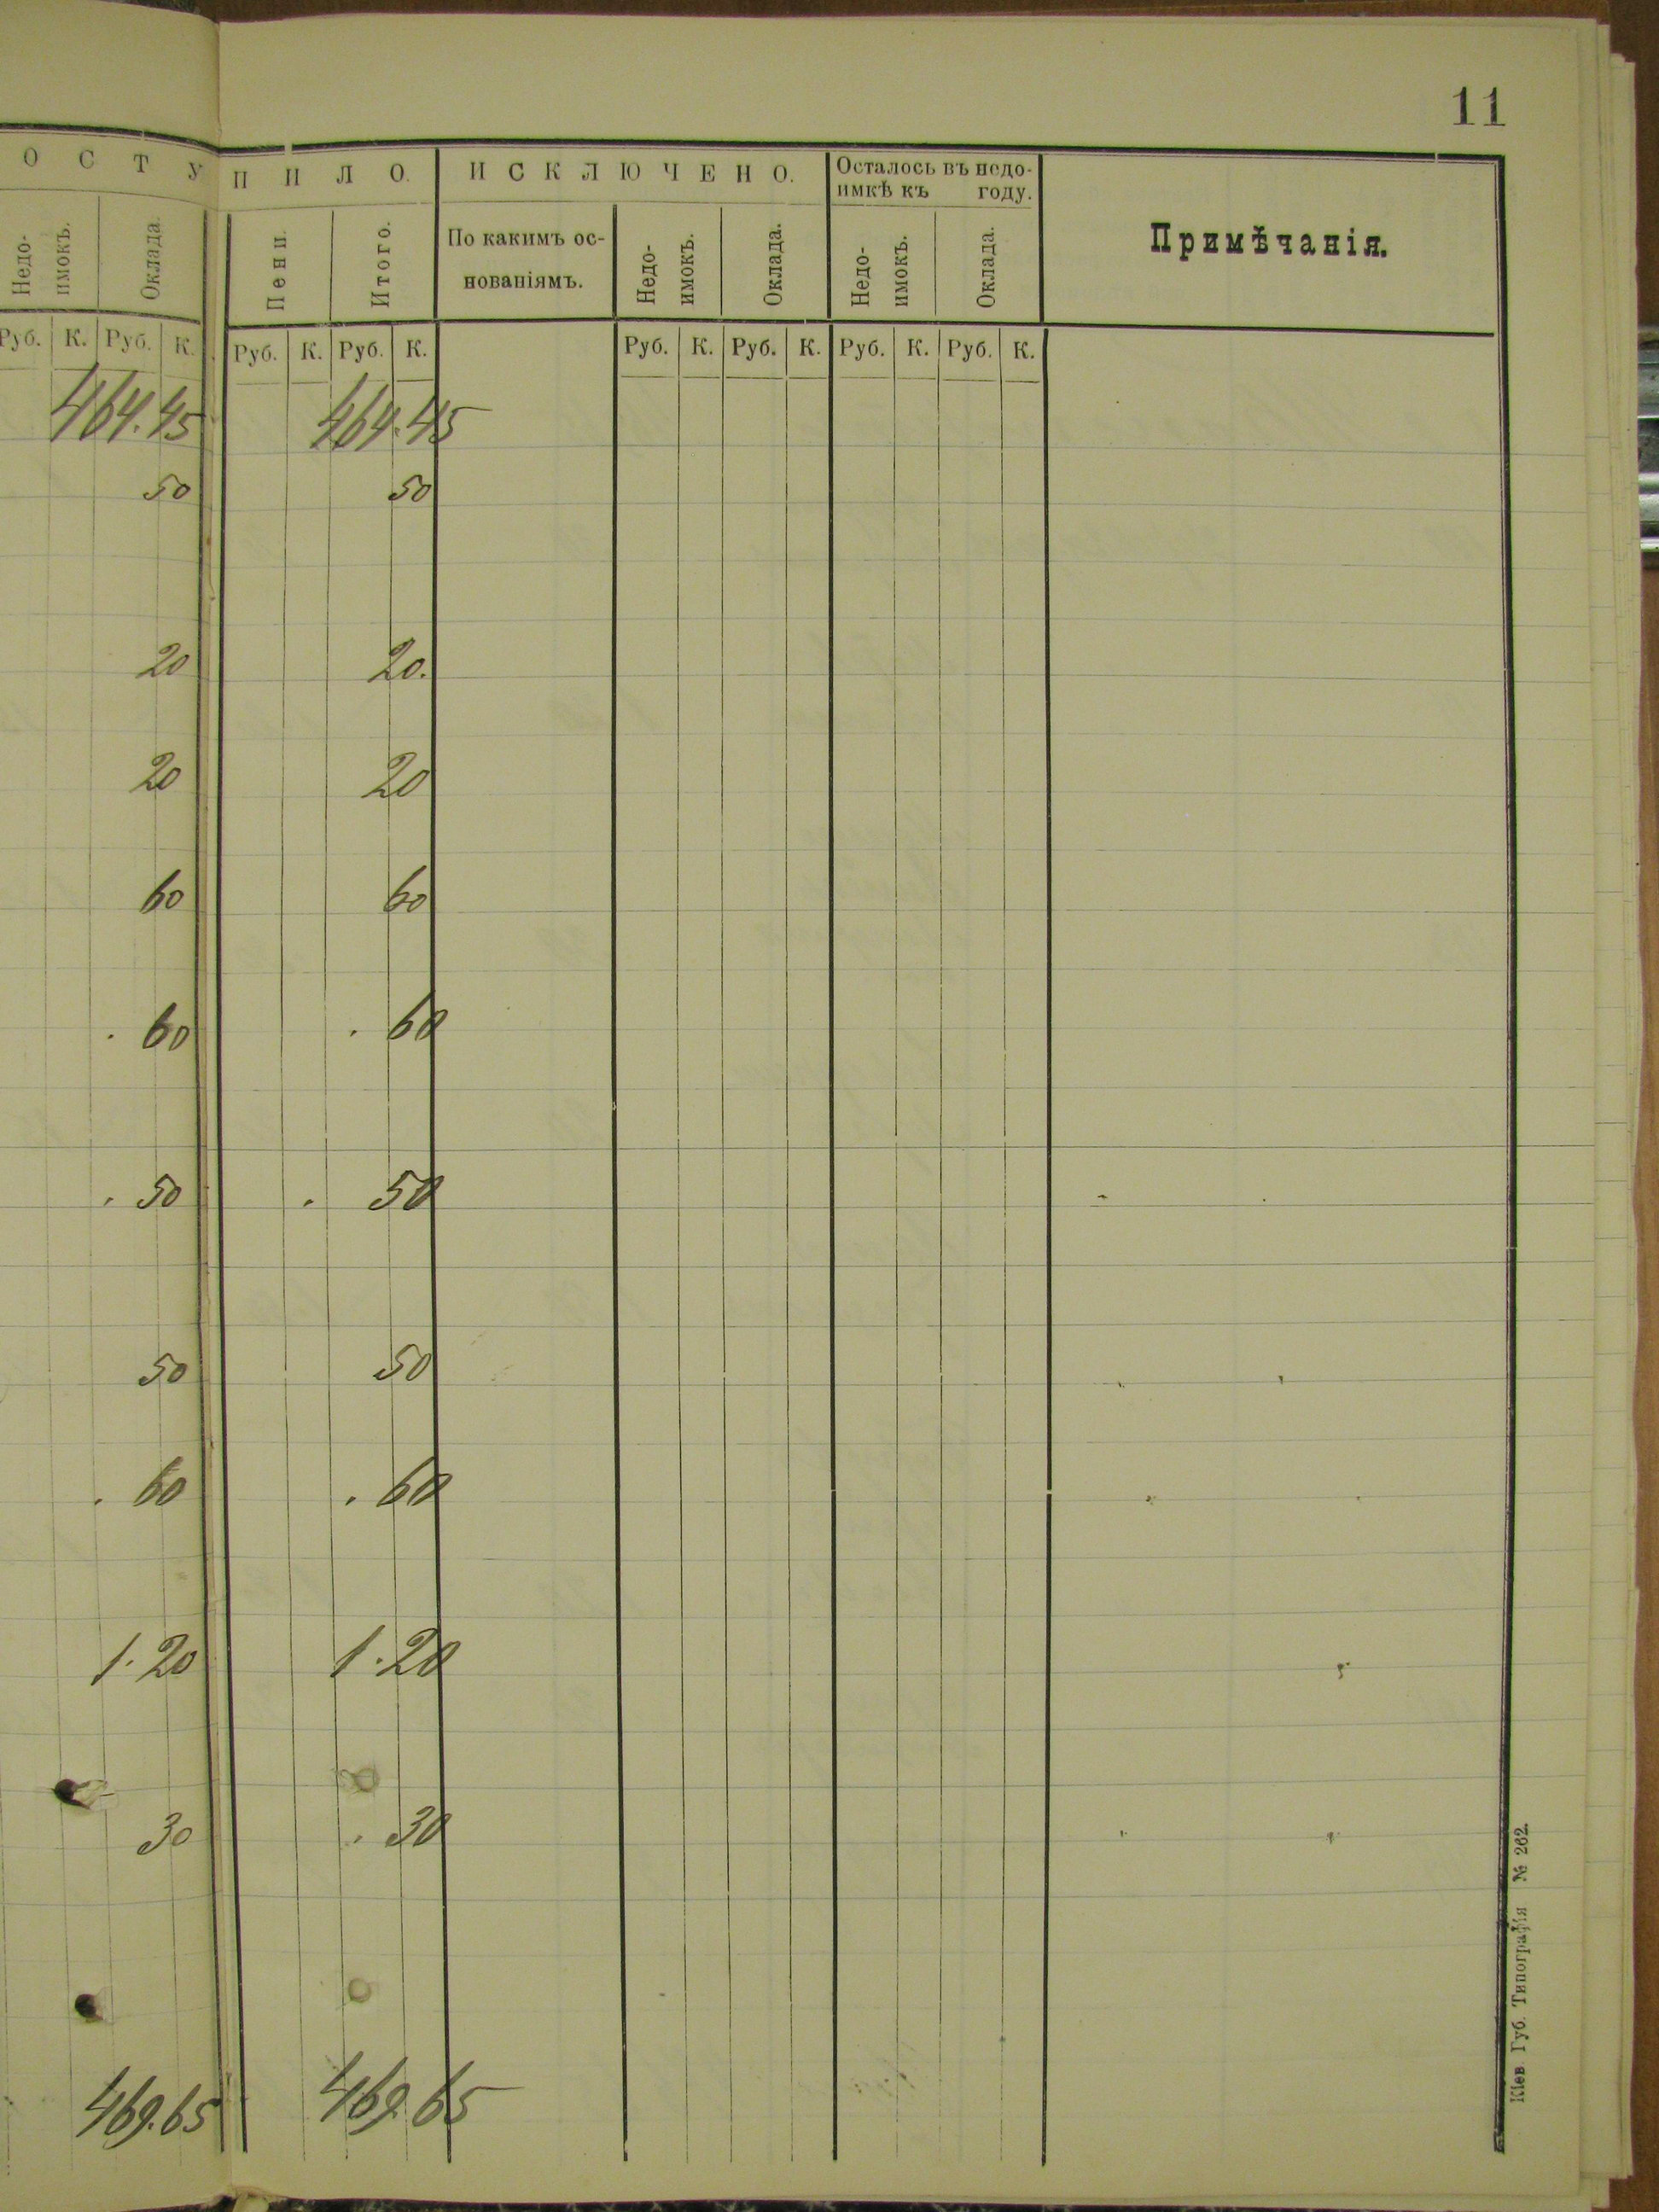 11
ОСТУПИЛО. ИСКЛЮЧЕНО. Осталось въ недо-
имкѣ къ году.
Примѣчанія.
Недо-
имокъ. Оклада. Пени. Итого. По какимъ ос-
нованіямъ. Недо-
имокъ. Оклада. Недо-
имокъ. Оклада.
Руб. К. Руб. К. Руб. К. Руб. К. Руб. К. Руб. К. Руб. К. Руб. К.
464.45 464.45
50 50
20 20.
20 20
60 60
. 60 . 60
. 50 . 50
50 50
. 60 . 60
1.20 1.20
30 . 30
469.65 469.65
Кіев. Губ. Типографія № 262.